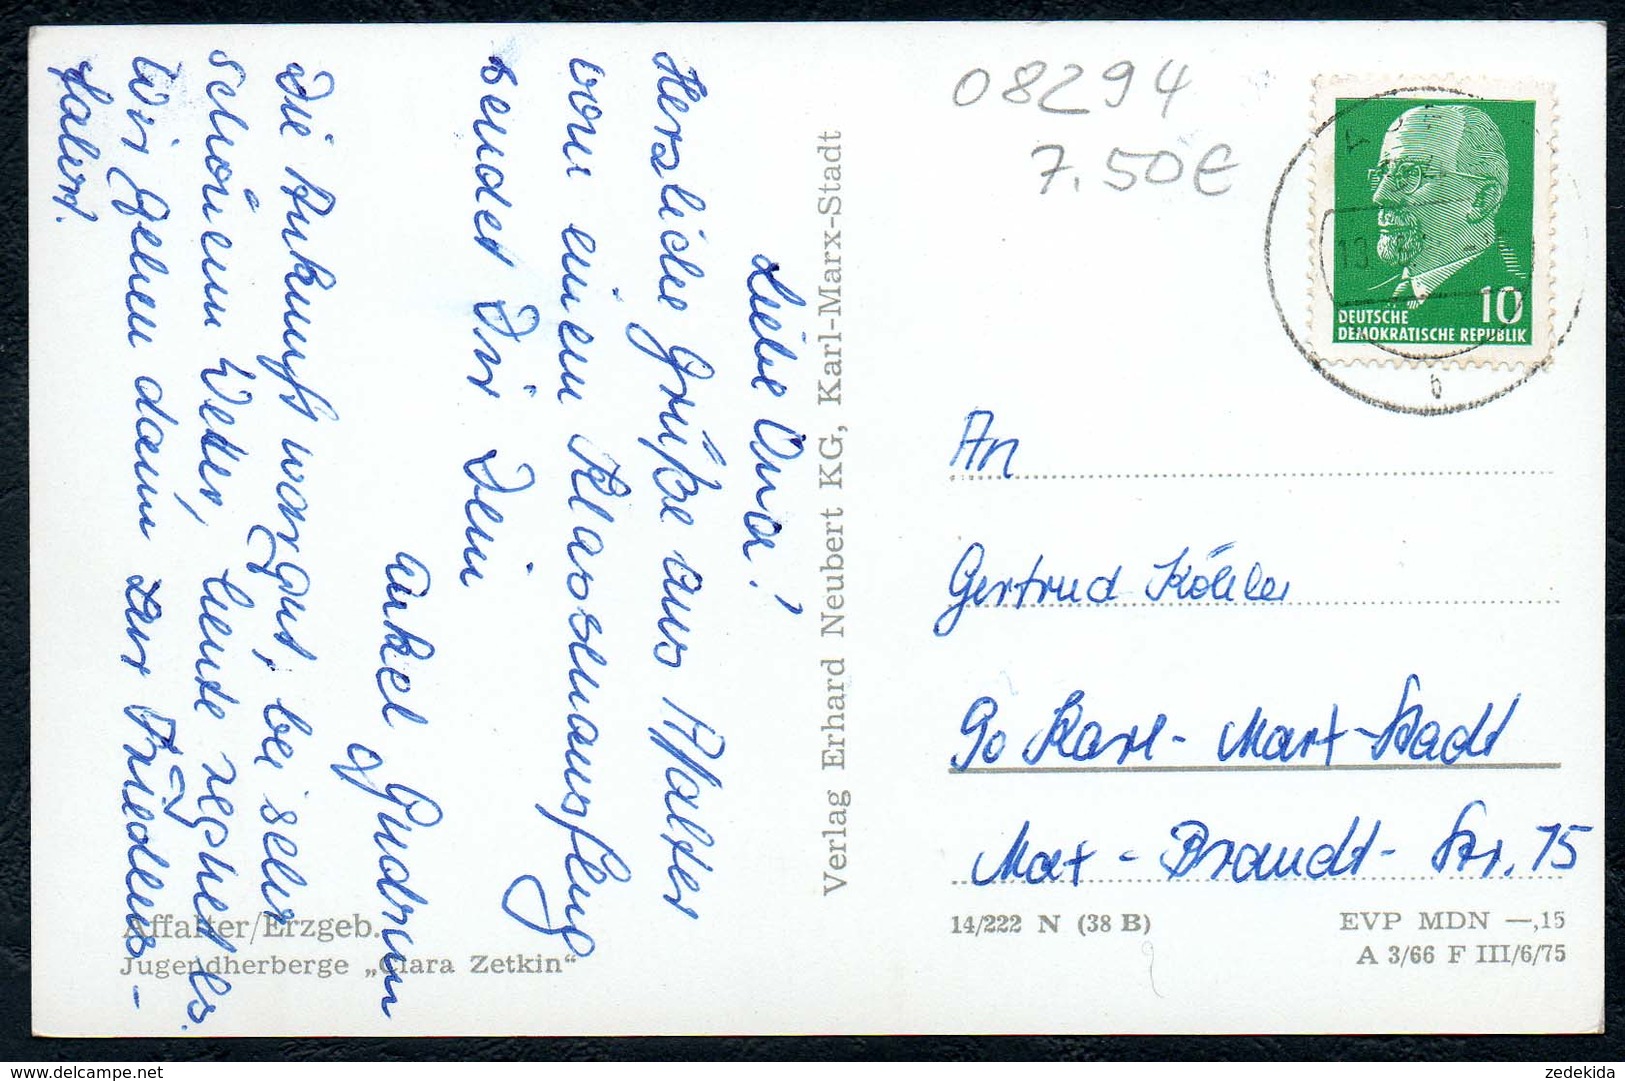 08294
7.50€
Liebe Oma!
Herzliche Grüße aus Affalter
von einem Klassenausflug
sendet Dir Dein
Enkel Gudrun
Die Ankunft war gut, bei sehr
schönem Wetter, heute regnet es.
Wir gehen dann zur Friedens-
fahrt.
Affalter/Erzgeb.
Jugendherberge „Clara Zetkin“
Verlag Erhard Neubert KG, Karl-Marx-Stadt
10
DEUTSCHE
DEMOKRATISCHE REPUBLIK
b
An
Gertrud Köhler
90 Karl-Marx-Stadt
Max-Brandt-Str. 75
14/222 N (38 B)
EVP MDN —,15
A 3/66 F III/6/75
www.delcampe.net
zedekida